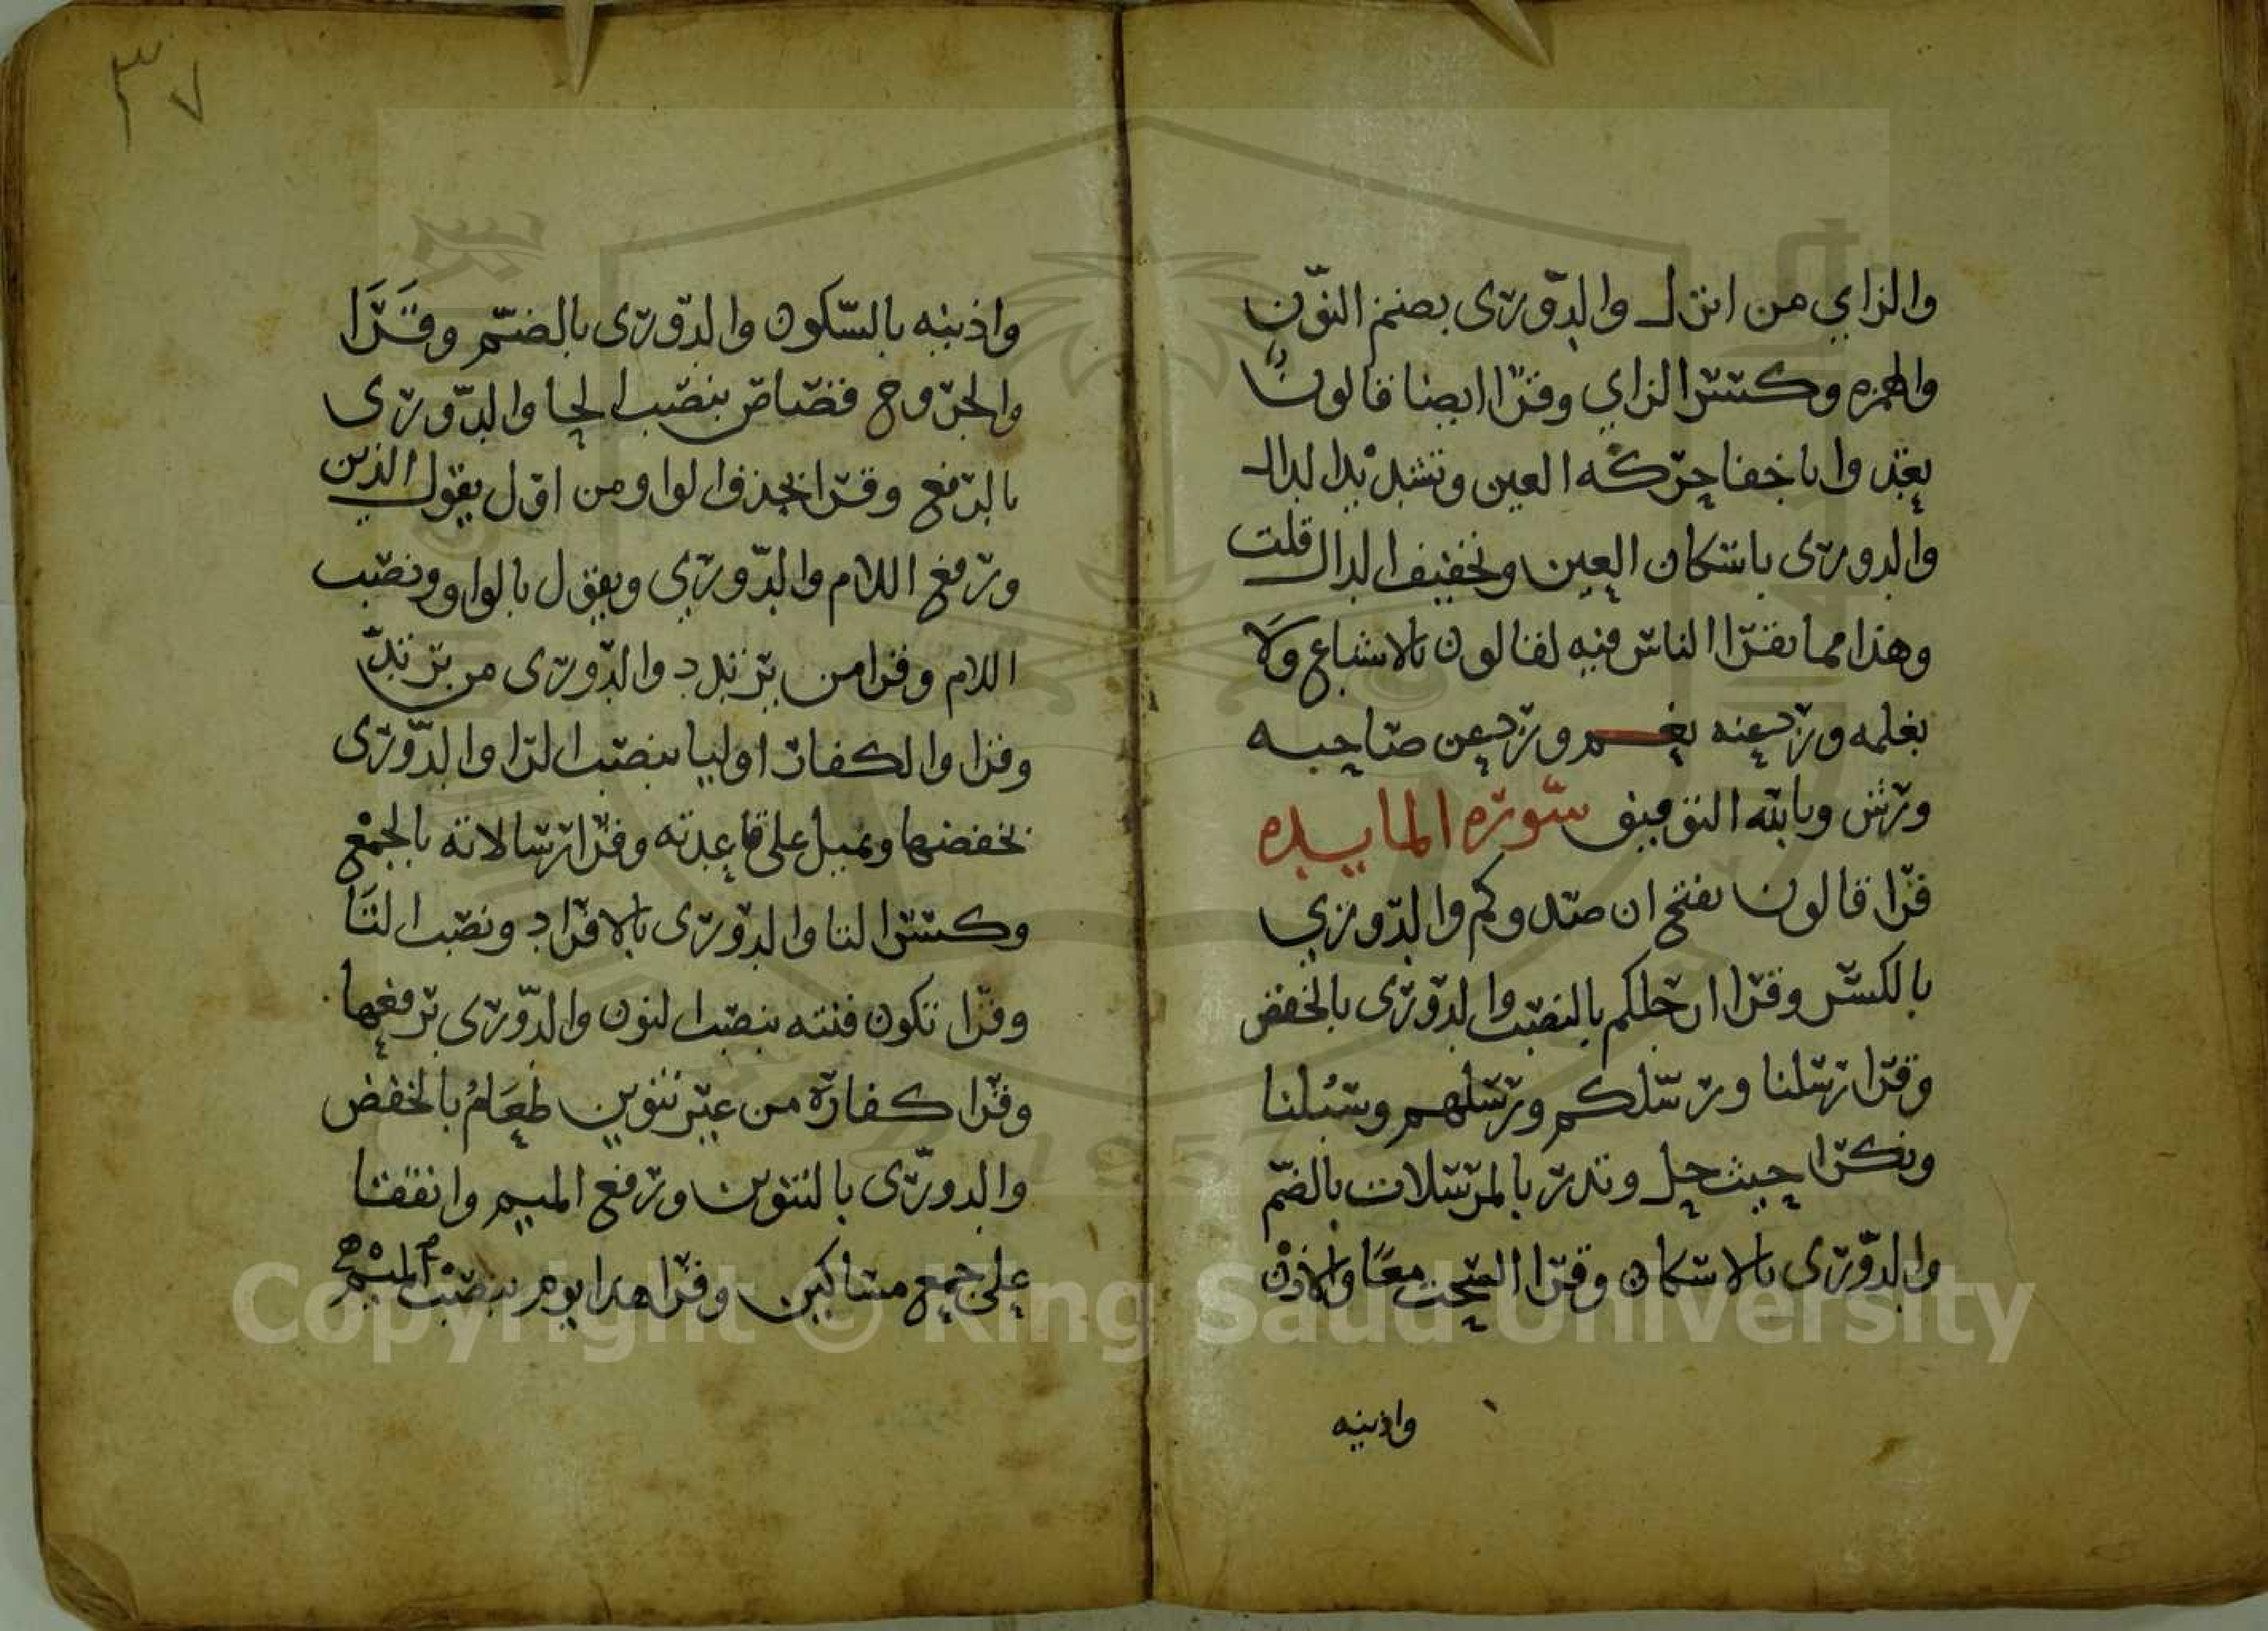 والزاي من انزل والدوري بضم النون
والهمزه وكسر الزاي وقرا ايضا قالون
يعدوا باخفا حركه العين وتشديد الدال
والدوري باسكان العين وتخفيف الدال قلت
وهذا مما يقرا الناس فيه لقالون بالاشباع ولا
بغلمه ورد عنه نعم ورد عن صاحبه
ورش وبالله التوفيق سورة المايده
قرا قالون بفتح ان صدوكم والدوري
بالكسر وقرا ارجلكم بالنصب والدوري بالخفض
وقرا رسلنا ورسلكم ورسلهم وسبلنا
ونكرا حيث حل ونذر بالمرسلات بالضم
والدوري بالاسكان وقرا السحت معا والاذن
واذنيه
٣٧
واذنيه بالسكون والدوري بالضم وقرا
والجروح قصاص بنصب الحا والدوري
بالرفع وقرا بحذف الواو من اول يقول الذين
ورفع اللام والدوري ويقول بالواو ونصب
اللام وقرا من يرتدد والدوري من يرتد
وقرا والكفار اوليا بنصب الرا والدوري
بخفضها ويميل على قاعدته وقرا رسالاته بالجمع
وكسر التا والدوري بالافراد ونصب التا
وقرا تكون فتنه بنصب النون والدوري برفعها
وقرا كفارة من غير تنوين طعام بالخفض
والدوري بالتنوين ورفع الميم واتفقا
على جمع مساكين وقرا هذا يوم بنصب الميم
Copyright © King Saud University
1957